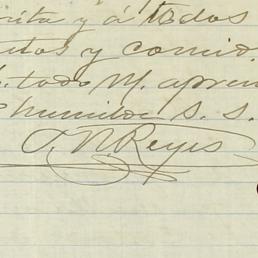 rita y á todos
itos y comid.
todo M. apren
humilde S. S.
T. N. Reyes